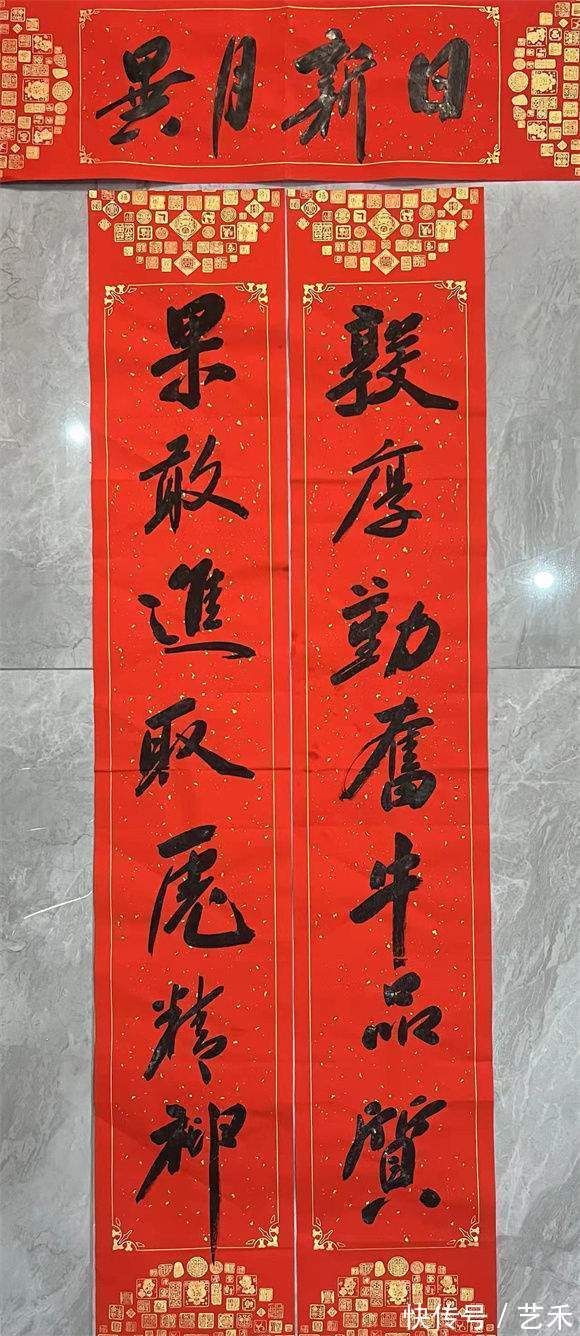 日新月異
敦厚勤奮牛品質
果敢進取虎精神
快传号 / 艺禾